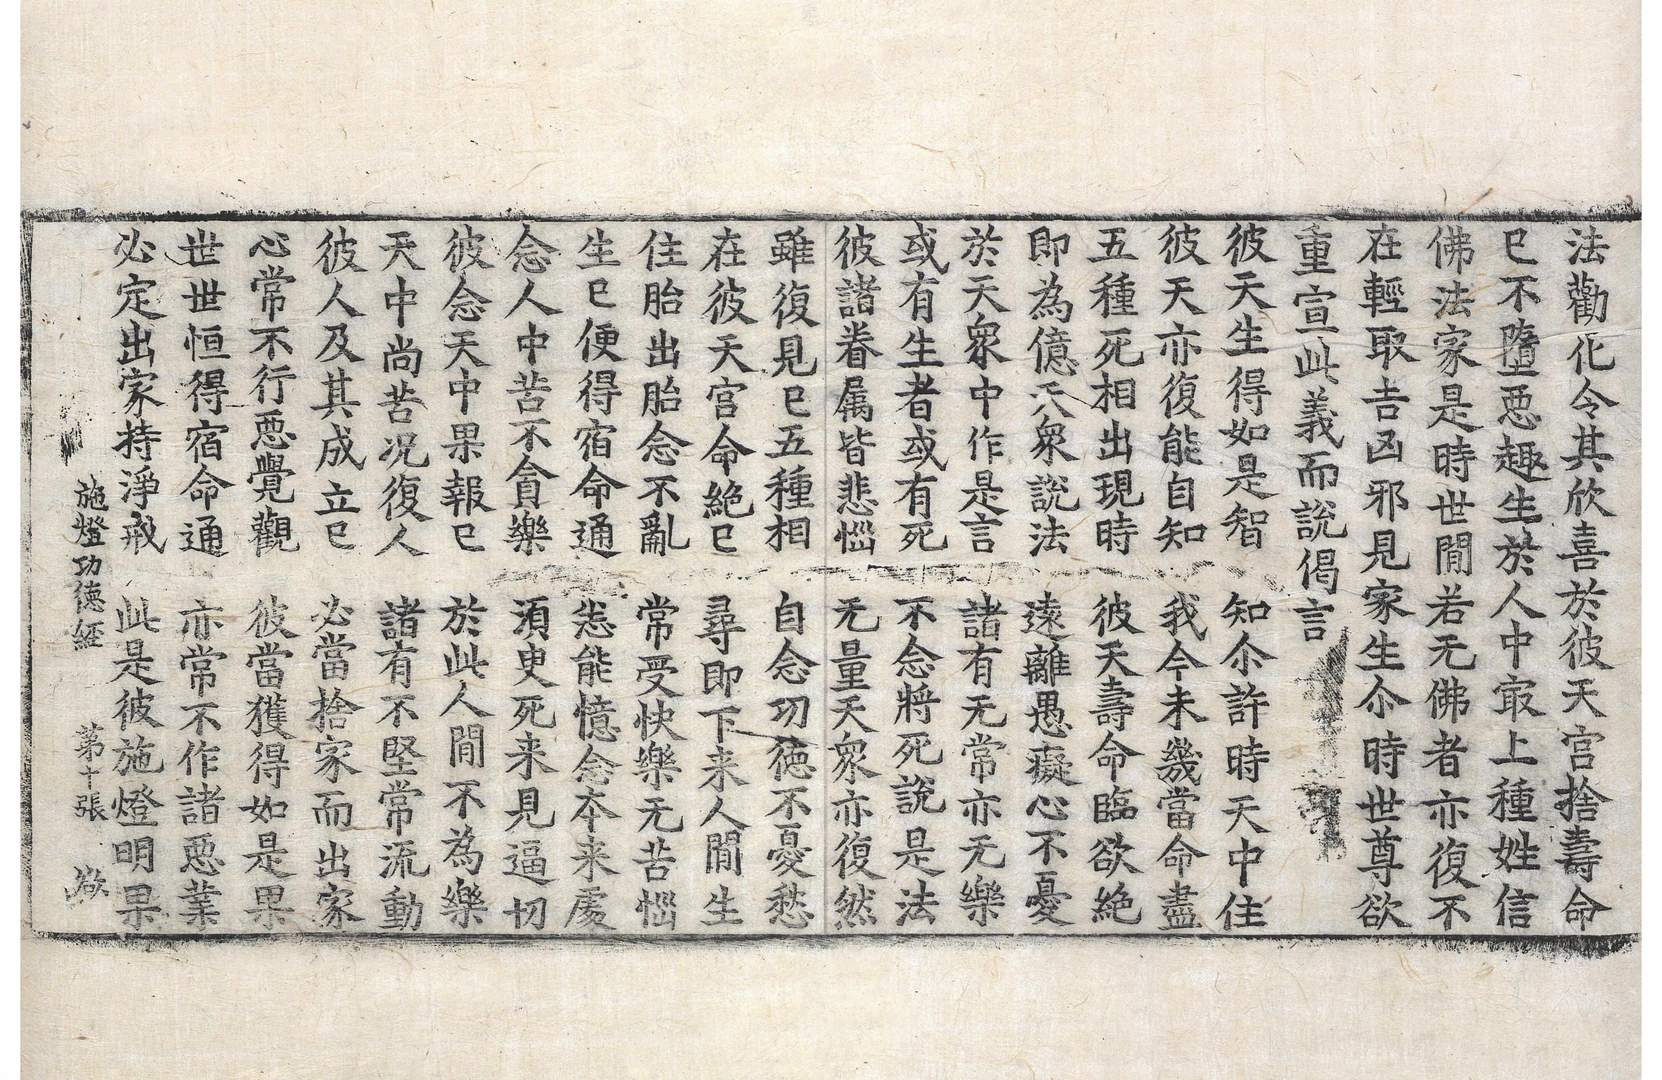 法勸化令其欣喜於彼天宮捨壽命
已不墮惡趣生於人中㝡上種姓信
佛法家是時世閒若无佛者亦復不
在輕取吉凶邪見家生尒時世尊欲
重宣此義而說偈言
彼天生得如是智　知尒許時天中住
彼天亦復能自知　我今未幾當命盡
五種死相出現時　彼天壽命臨欲絶
即為億天衆說法　遠離愚癡心不憂
於天衆中作是言　諸有无常亦无樂
或有生者或有死　不念將死說是法
彼諸眷属皆悲惱　无量天衆亦復然
雖復見已五種相　自念功徳不憂愁
在彼天宮命絶已　尋即下来人閒生
住胎出胎念不亂　常受快樂无苦惱
生已便得宿命通　悉能憶念本来處
念人中苦不貪樂　須臾死来見逼切
彼念天中果報已　於此人閒不為樂
天中尚苦况復人　諸有不堅常流動
彼人及其成立已　必當捨家而出家
心常不行惡覺觀　彼當獲得如是果
世世恒得宿命通　亦常不作諸惡業
必定出家持淨戒　此是彼施燈明果
施燈功徳経　第十張　欲